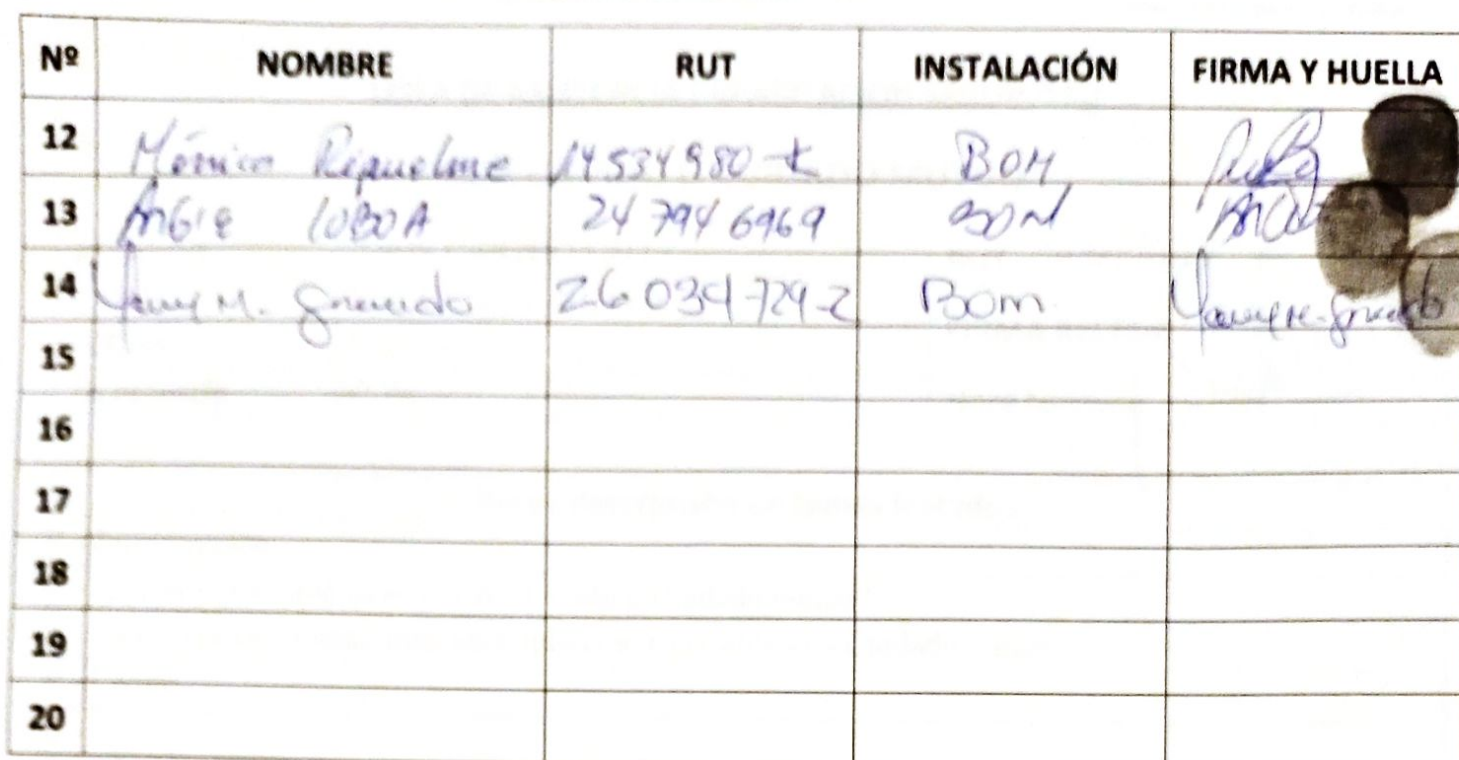 Nº NOMBRE RUT INSTALACIÓN FIRMA Y HUELLA
12 Mónica Riquelme 14534980-K BOM
13 ANGIE LOBOA 24 794 6969 BOM
14 M. 26 034-729-2 Bom
15
16
17
18
19
20